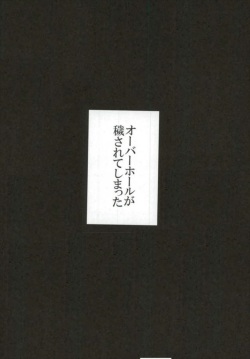 オーバーホールが
穢されてしまった